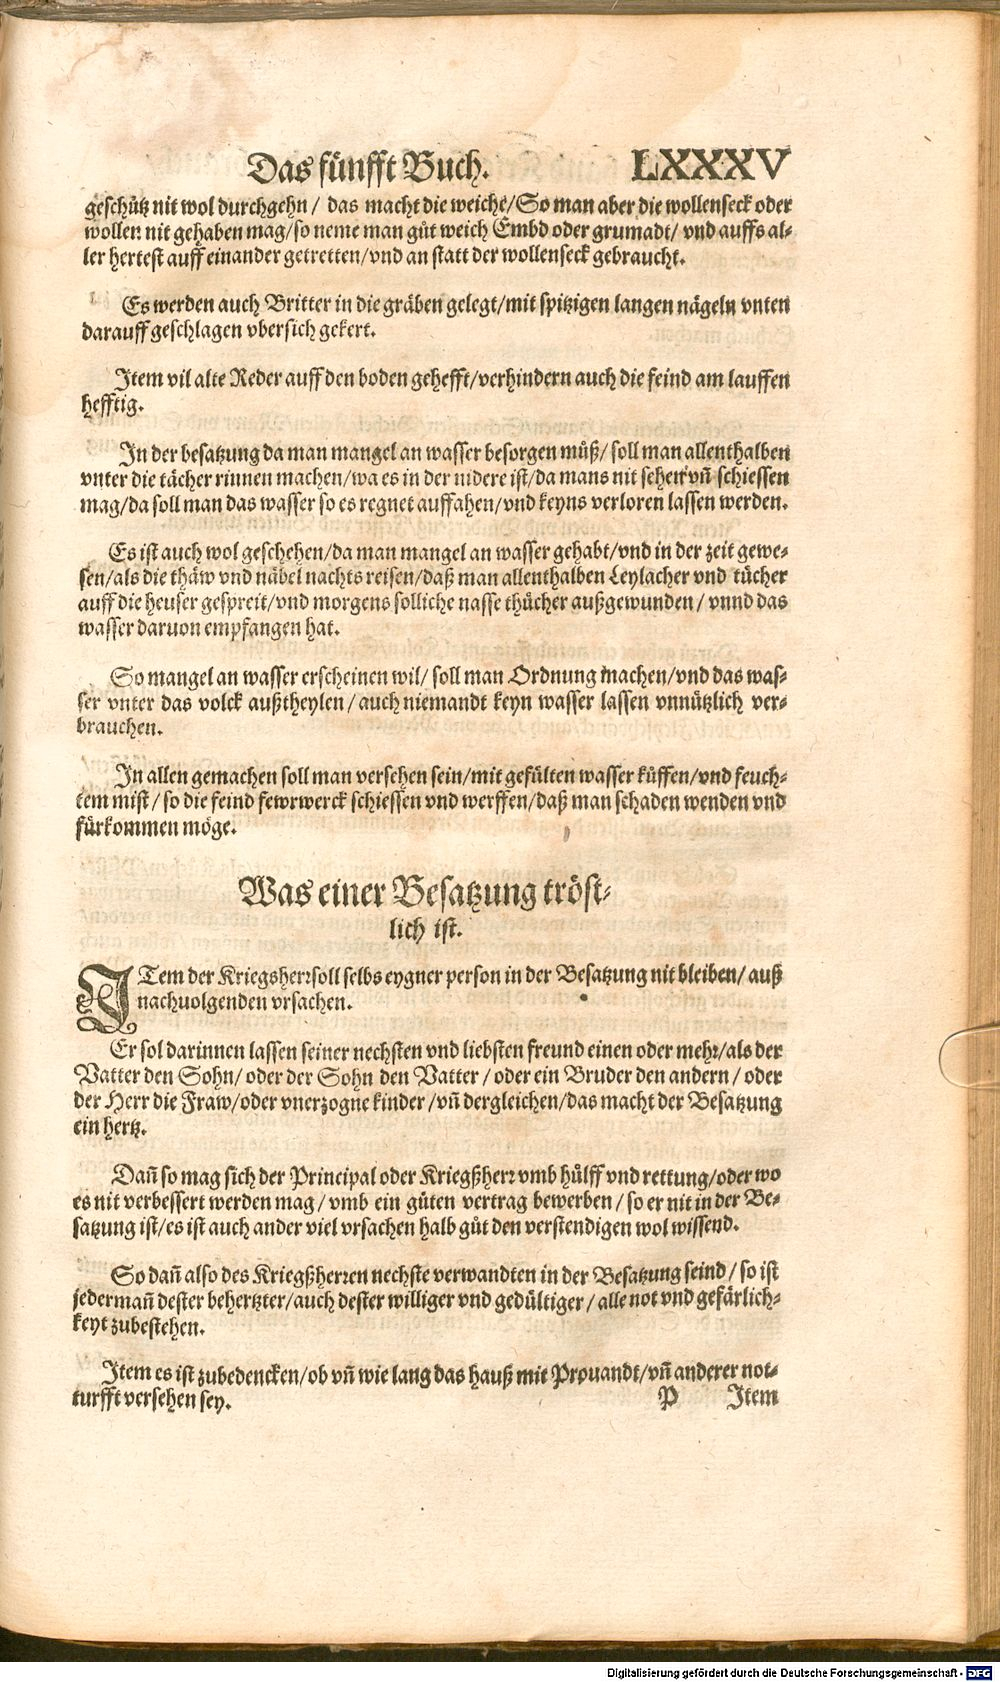 Das fünfft Buch. LXXXV
geschütz nit wol durchgehn / das macht die weiche/So man aber die wollenseck oder
wollen nit gehaben mag/so neme man gůt weich Embd oder grumadt/ vnd auffs al-
ler hertest auff einander getretten/vnd an statt der wollenseck gebraucht.
Es werden auch Britter in die gräben gelegt/mit spitzigen langen nägeln vnten
darauff geschlagen vbersich gekert.
Item vil alte Reder auff den boden gehefft/verhindern auch die feind am lauffen
hefftig.
In der besatzung da man mangel an wasser besorgen můß/ soll man allenthalben
vnter die tächer rinnen machen/wa es in der nidere ist/da mans nit sehen vñ schiessen
mag/da soll man das wasser so es regnet auffahen/vnd keyns verloren lassen werden.
Es ist auch wol geschehen/da man mangel an wasser gehabt/vnd in der zeit gewe-
sen/als die thäw vnd näbel nachts reisen/daß man allenthalben Leylacher vnd tücher
auff die heuser gespreit/vnd morgens solliche nasse thücher außgewunden / vnnd das
wasser daruon empfangen hat.
So mangel an wasser erscheinen wil/ soll man Ordnung machen/vnd das was-
ser vnter das volck außtheylen/ auch niemandt keyn wasser lassen vnnützlich ver-
brauchen.
In allen gemachen soll man versehen sein/mit gefülten wasser küffen/vnd feuch-
tem mist/ so die feind fewrwerck schiessen vnd werffen/daß man schaden wenden vnd
fürkommen möge.
Was einer Besatzung tröst-
lich ist.
ITem der Kriegsherr soll selbs eygner person in der Besatzung nit bleiben/ auß
nachuolgenden vrsachen.
Er sol darinnen lassen seiner nechsten vnd liebsten freund einen oder mehr/als der
Vatter den Sohn/ oder der Sohn den Vatter / oder ein Bruder den andern / oder
der Herr die Fraw/oder vnerzogne kinder /vñ dergleichen/das macht der Besatzung
ein hertz.
Dañ so mag sich der Principal oder Kriegßherr vmb hülff vnd rettung/oder wo
es nit verbessert werden mag / vmb ein gůten vertrag bewerben / so er nit in der Be-
satzung ist/es ist auch ander viel vrsachen halb gůt den verstendigen wol wissend.
So dañ also des Kriegßherren nechste verwandten in der Besatzung seind / so ist
jedermañ dester behertzter/auch dester williger vnd gedültiger / alle not vnd gefärlich-
keyt zubestehen.
Item es ist zubedencken/ob vñ wie lang das hauß mit Prouandt/vñ anderer not-
turfft versehen sey. P Item
Digitalisierung gefördert durch die Deutsche Forschungsgemeinschaft - DFG